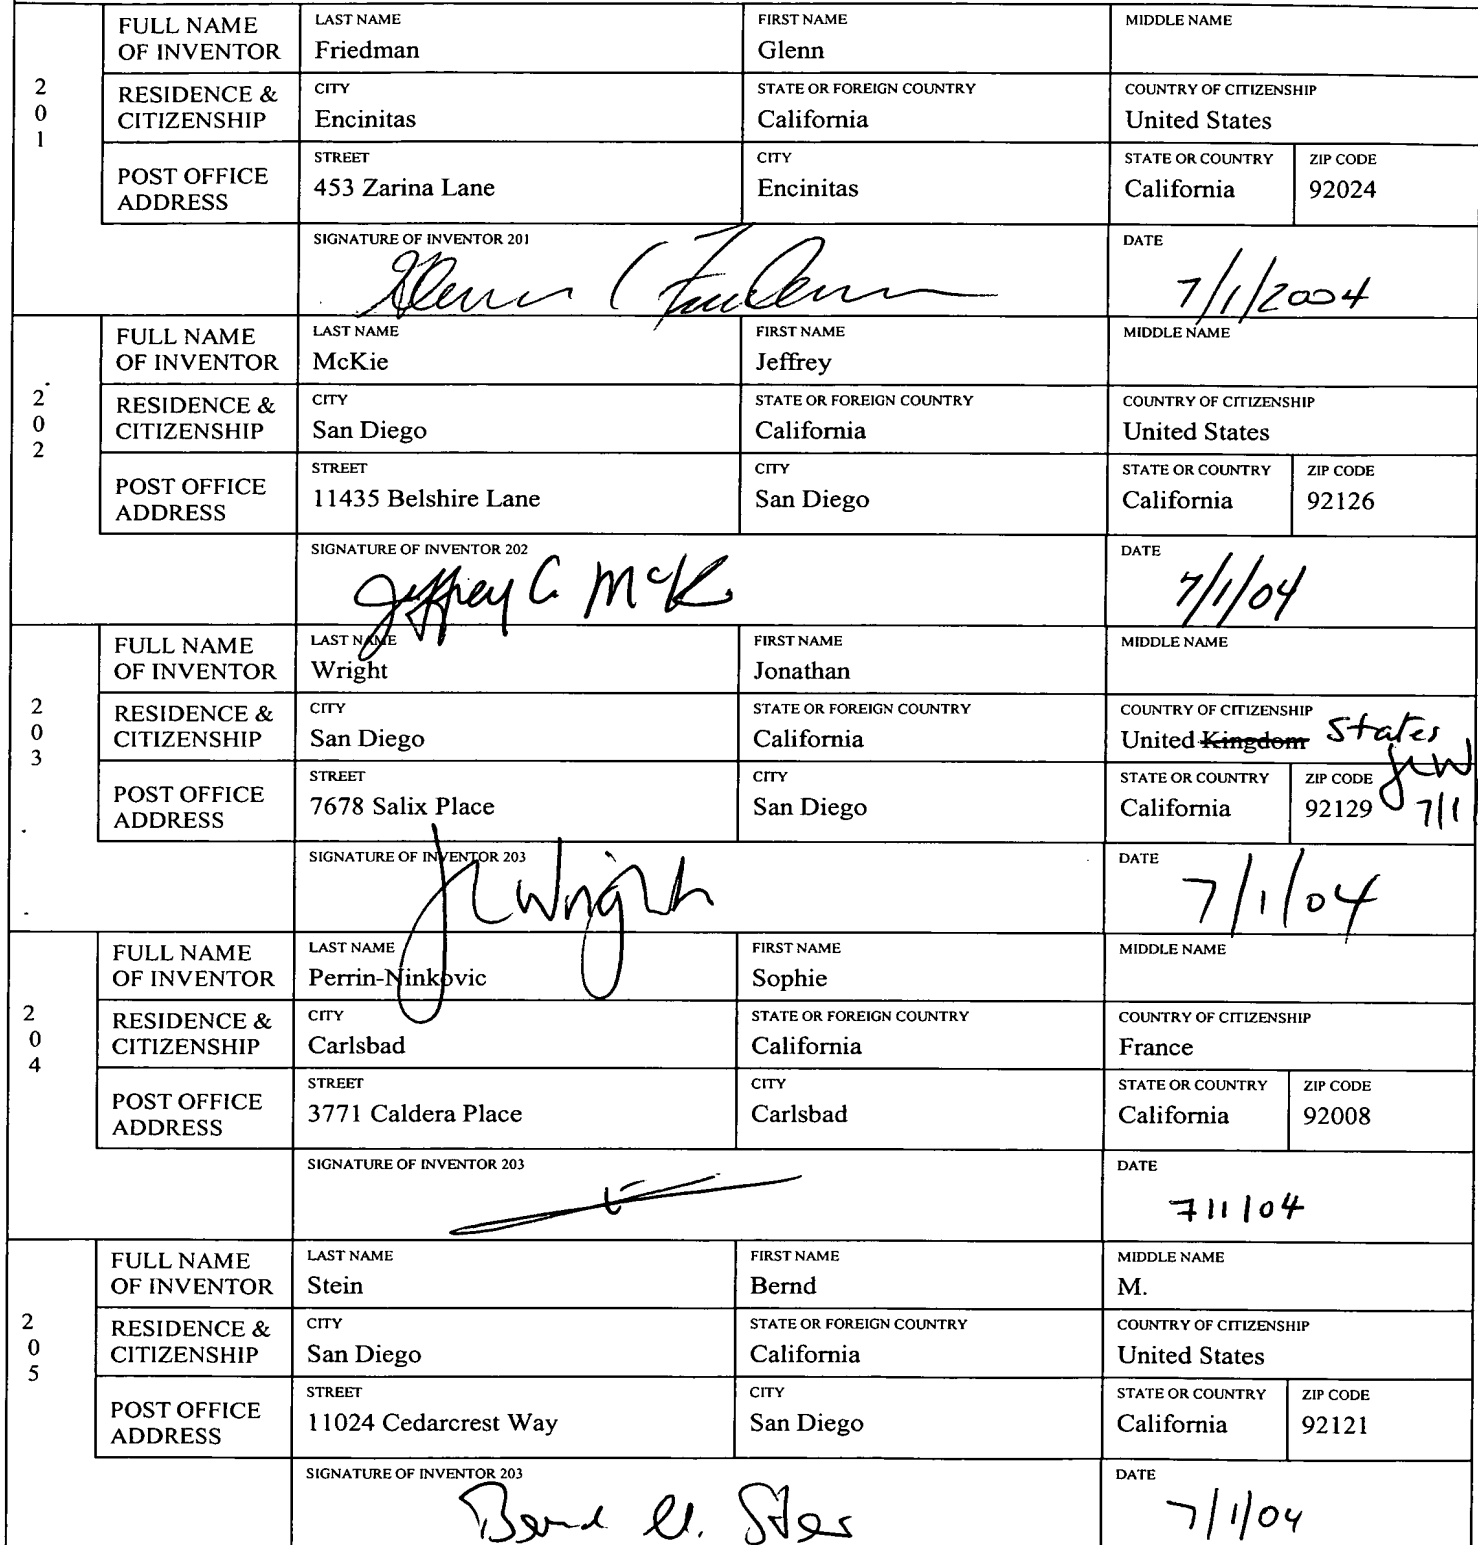 201
FULL NAME OF INVENTOR
LAST NAME
Friedman
FIRST NAME
Glenn
MIDDLE NAME
RESIDENCE & CITIZENSHIP
CITY
Encinitas
STATE OR FOREIGN COUNTRY
California
COUNTRY OF CITIZENSHIP
United States
POST OFFICE ADDRESS
STREET
453 Zarina Lane
CITY
Encinitas
STATE OR COUNTRY
California
ZIP CODE
92024
SIGNATURE OF INVENTOR 201
DATE
7/1/2004
202
FULL NAME OF INVENTOR
LAST NAME
McKie
FIRST NAME
Jeffrey
MIDDLE NAME
RESIDENCE & CITIZENSHIP
CITY
San Diego
STATE OR FOREIGN COUNTRY
California
COUNTRY OF CITIZENSHIP
United States
POST OFFICE ADDRESS
STREET
11435 Belshire Lane
CITY
San Diego
STATE OR COUNTRY
California
ZIP CODE
92126
SIGNATURE OF INVENTOR 202
Jeffrey C. McK
DATE
7/1/04
203
FULL NAME OF INVENTOR
LAST NAME
Wright
FIRST NAME
Jonathan
MIDDLE NAME
RESIDENCE & CITIZENSHIP
CITY
San Diego
STATE OR FOREIGN COUNTRY
California
COUNTRY OF CITIZENSHIP
United Kingdom States
JLW
7/1
POST OFFICE ADDRESS
STREET
7678 Salix Place
CITY
San Diego
STATE OR COUNTRY
California
ZIP CODE
92129
SIGNATURE OF INVENTOR 203
JL Wright
DATE
7/1/04
204
FULL NAME OF INVENTOR
LAST NAME
Perrin-Ninkovic
FIRST NAME
Sophie
MIDDLE NAME
RESIDENCE & CITIZENSHIP
CITY
Carlsbad
STATE OR FOREIGN COUNTRY
California
COUNTRY OF CITIZENSHIP
France
POST OFFICE ADDRESS
STREET
3771 Caldera Place
CITY
Carlsbad
STATE OR COUNTRY
California
ZIP CODE
92008
SIGNATURE OF INVENTOR 203
DATE
7/1/04
205
FULL NAME OF INVENTOR
LAST NAME
Stein
FIRST NAME
Bernd
MIDDLE NAME
M.
RESIDENCE & CITIZENSHIP
CITY
San Diego
STATE OR FOREIGN COUNTRY
California
COUNTRY OF CITIZENSHIP
United States
POST OFFICE ADDRESS
STREET
11024 Cedarcrest Way
CITY
San Diego
STATE OR COUNTRY
California
ZIP CODE
92121
SIGNATURE OF INVENTOR 203
Bernd M. Stein
DATE
7/1/04